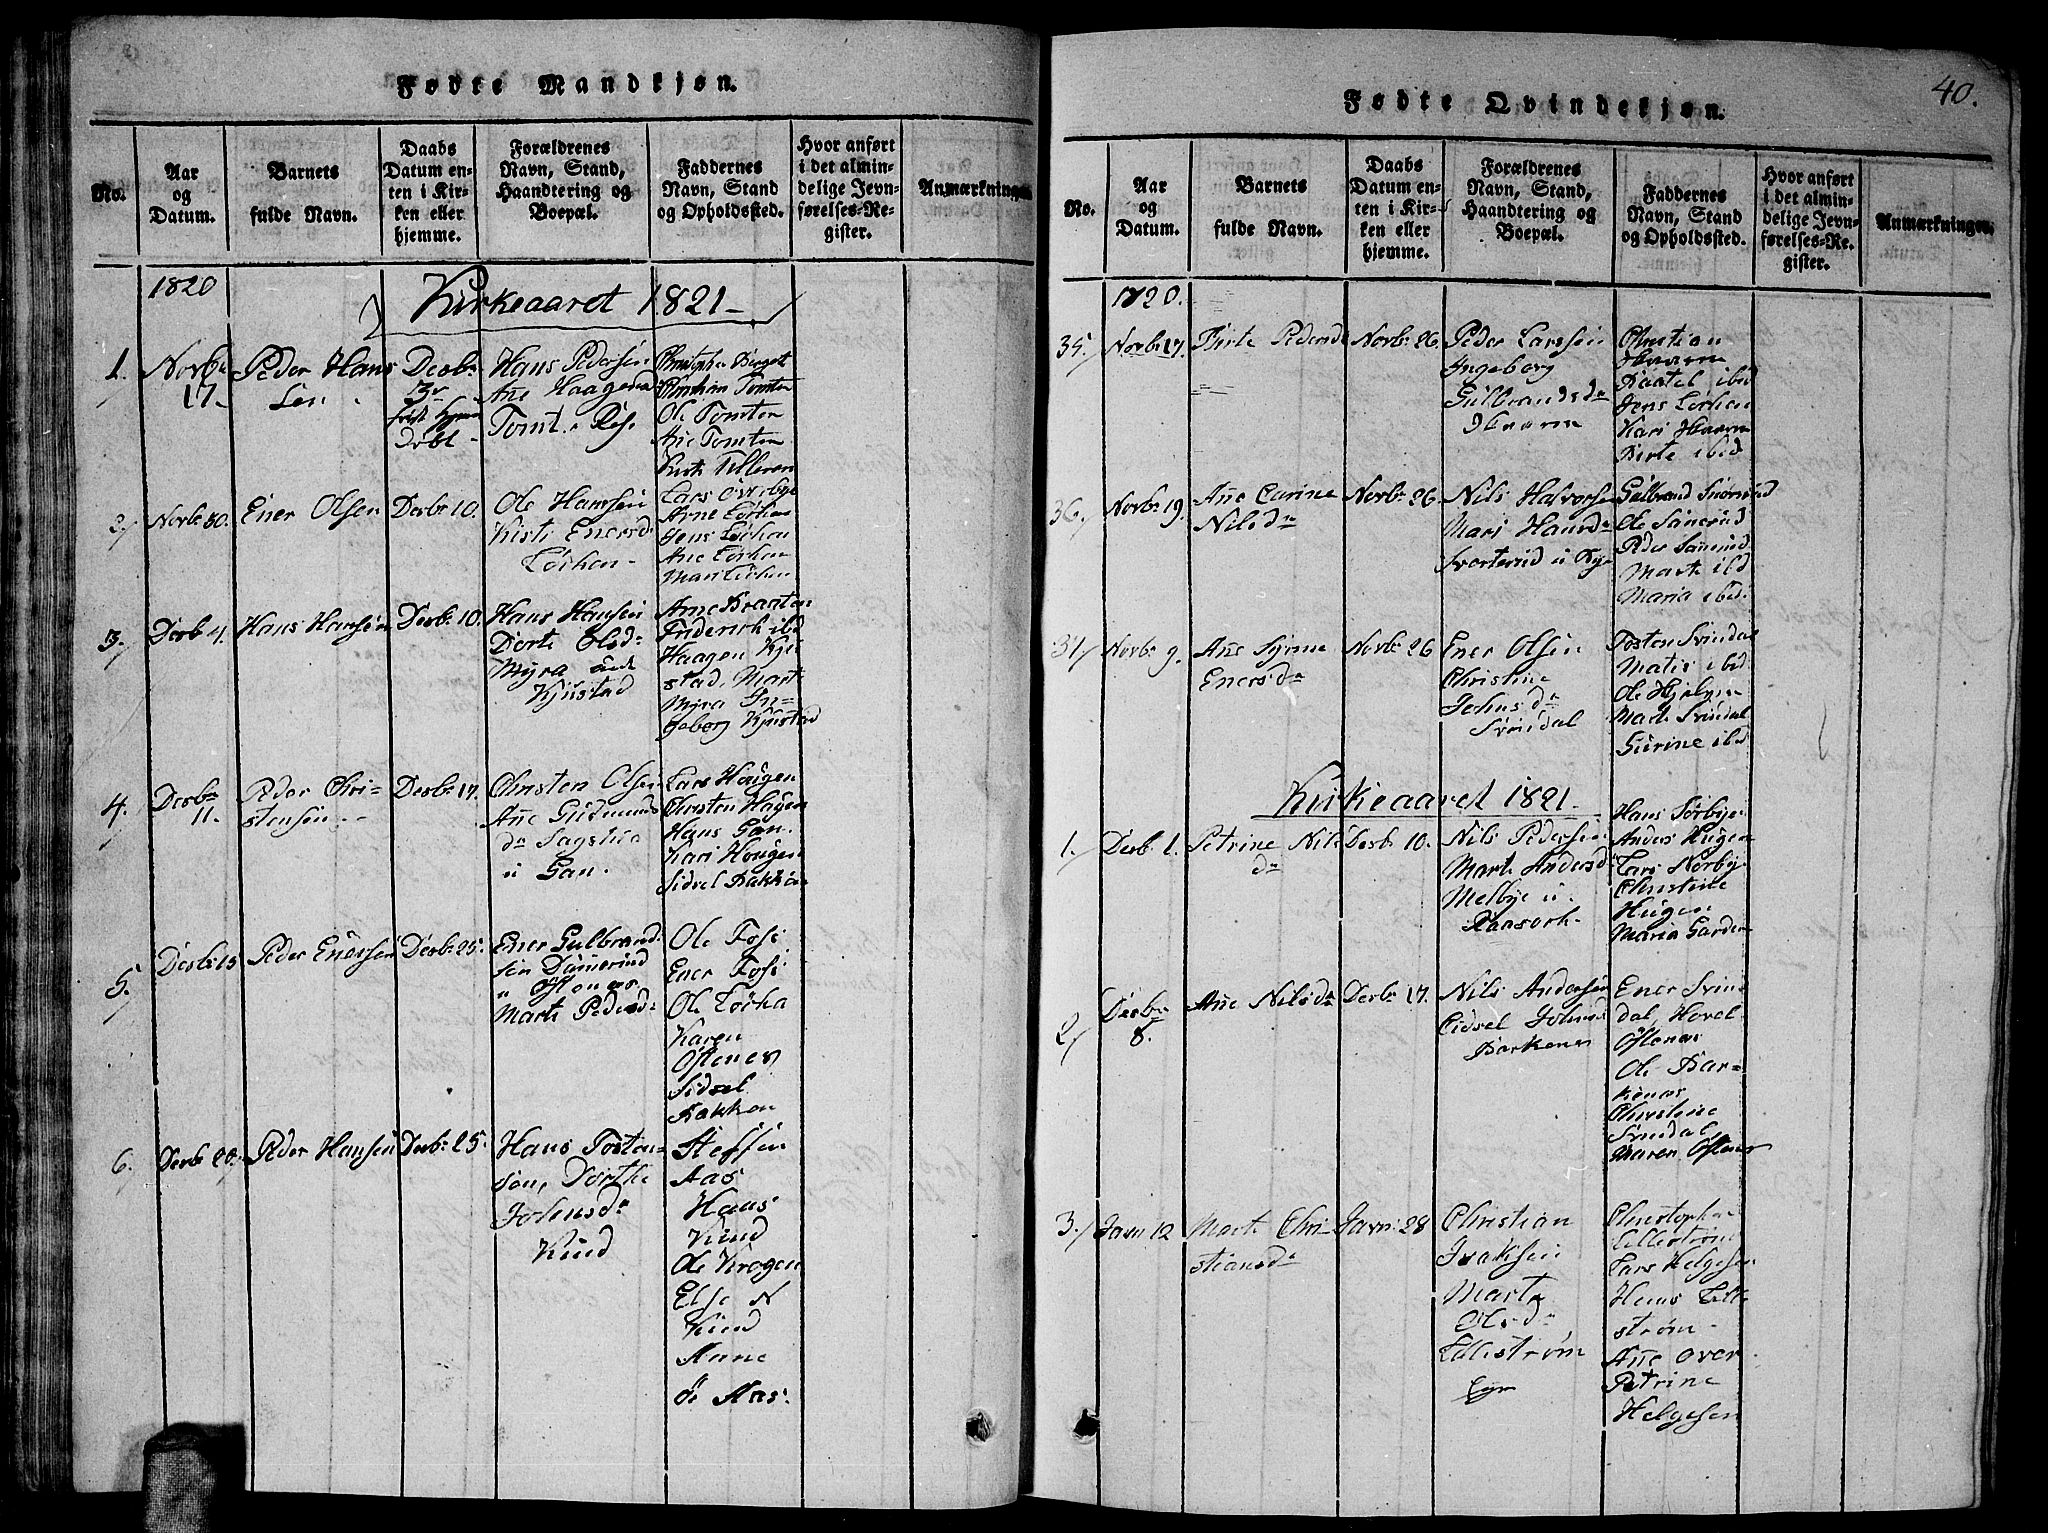 Fødte Mandkjøn.
No.
Aar
og
Datum.
Barnets
fulde Navn.
Daabs
Datum en-
ten i Kir-
ken eller
hjemme.
Forældrenes
Navn, Stand,
Haandtering og
Boepæl.
Faddernes
Navn, Stand
og Opholdssted.
Hvor anført
i det almin-
delige Jevn-
førelses-Re-
gister.
Anmærkninger.
1820
Kirkeaaret 1821
1.
Novbr
17.
Peder Hans
Sen
Desbr
3
Hans Pedersen
Ane Haagensd
Tomt
Ole Tomten
Ane Tomten
2
Novbr 30.
Ener Olsen
Desbr 10.
Ole Hansen
Kisti Enersd
Lörken
Lars Overbye
Arne Lörken
Jens Lörken
Ane Lörken
Mari Lörken
3.
Desb 4.
Hans Hansen
Desbr 10.
Hans Hansen
Dorte Olsd
Myra und
Kjustad
Arne Braaten
Friderick ibd
Haagen Kju
stad, Mart
Myra In-
geborg Kjustad
4.
Desbr
11.
Peder Chri-
stensen
Desbr 17.
Christen Olsen
Ane Gudmunds
dr Sagstue
u Gan.
Lars Hougen
Christen Hagen
Hans Gan.
Kari Hougen
Sidsel Bakken
5.
Desbr 15
Peder Enersen
Desbr 25.
Ener Gulbrand
sen Dammerud
u Ostenes
Marte Pedersdr
Ole Fosi
Ener Fosi
Ole Lörka
Karen
Ostenes
Sidsel
Bakken
6.
Desbr 20.
Peder Hansen
Desbr 25.
Hans Tosten-
sen, Dorthe
Johnsdr
Kiud
Steffen
Aas
Hans
Kiud
Ole Krogen
Else
Kiud
Anne
Aas
40.
Fødte Qvindekjøn.
No.
Aar
og
Datum.
Barnets
fulde Navn.
Daabs
Datum en-
ten i Kir-
ken eller
hjemme.
Forældrenes
Navn, Stand,
Haandtering og
Boepæl.
Faddernes
Navn, Stand
og Opholdssted.
Hvor anført
i det almin-
delige Jevn-
førelses-Re-
gister.
Anmærkninger.
1820.
35.
Novbr 17.
Birte Pedersd
Novbr 26
Peder Larssen
Ingeborg
Gulbrandsdr
Ihvarm
Christian
Baatel ibid
Jens Lörken
Kari
Birte ibid
36.
Novbr 19.
Ane Carine
Nilsdr
Novbr 26.
Nils Halvorsen
Mari Hansdr
Svarterud
Gulbrand
Ole Sanerud
Peder Sanerud
Marte ibd
Maria ibid.
37
Novbr 9.
Ane
Enersdr
Novbr 26
Ener Olsen
Christine
Johnsdr
Svindal
Tosten Svindal
Matis ibid
Ole
Marte Svindal
Gurine ibd
Kirkeaaret 1821.
1.
Desb 1.
Petrine Nils
dr
Desbr 10.
Nils Pedersen
Marte Andersdr
Melbye u.
Hans Sørbye
Anders Hugen
Lars Norbye
Christine
Hugen
Maria Garder
2
Desbr
8.
Ane Nilsdr
Desbr 17.
Nils Andersen
Cidsel Johnsd
Barkenes
Ener Svin
dal, Hovel
Ostenes
Ole Bar-
kenes
Christine
Svindal
Maren Ostenes
3.
Janr 12
Marte Chri
stiansdr
Janr 28
Christian
Isaksen
Marte
Olsdr
Lillestrøm
Eyer
Christopher
Lillestrøm
Lars Helgesen
Hans Lille
strøm
Ane Over
Petrine
Helgesen